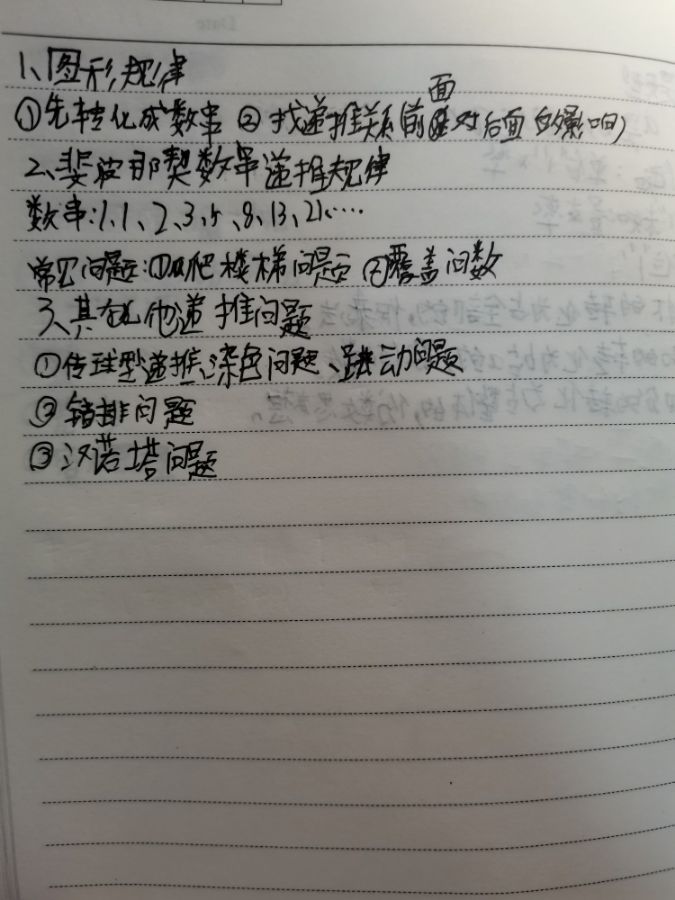 1、图形规律
①先转化成数串 ②找递推关系(前面对后面的影响)
2、斐波那契数串递推规律
数串:1、1、2、3、5、8、13、21、……
常见问题:①爬楼梯问题 ②覆盖问数
3、其他递推问题
①传球型递推、染色问题、跳动问题
②错排问题
③汉诺塔问题